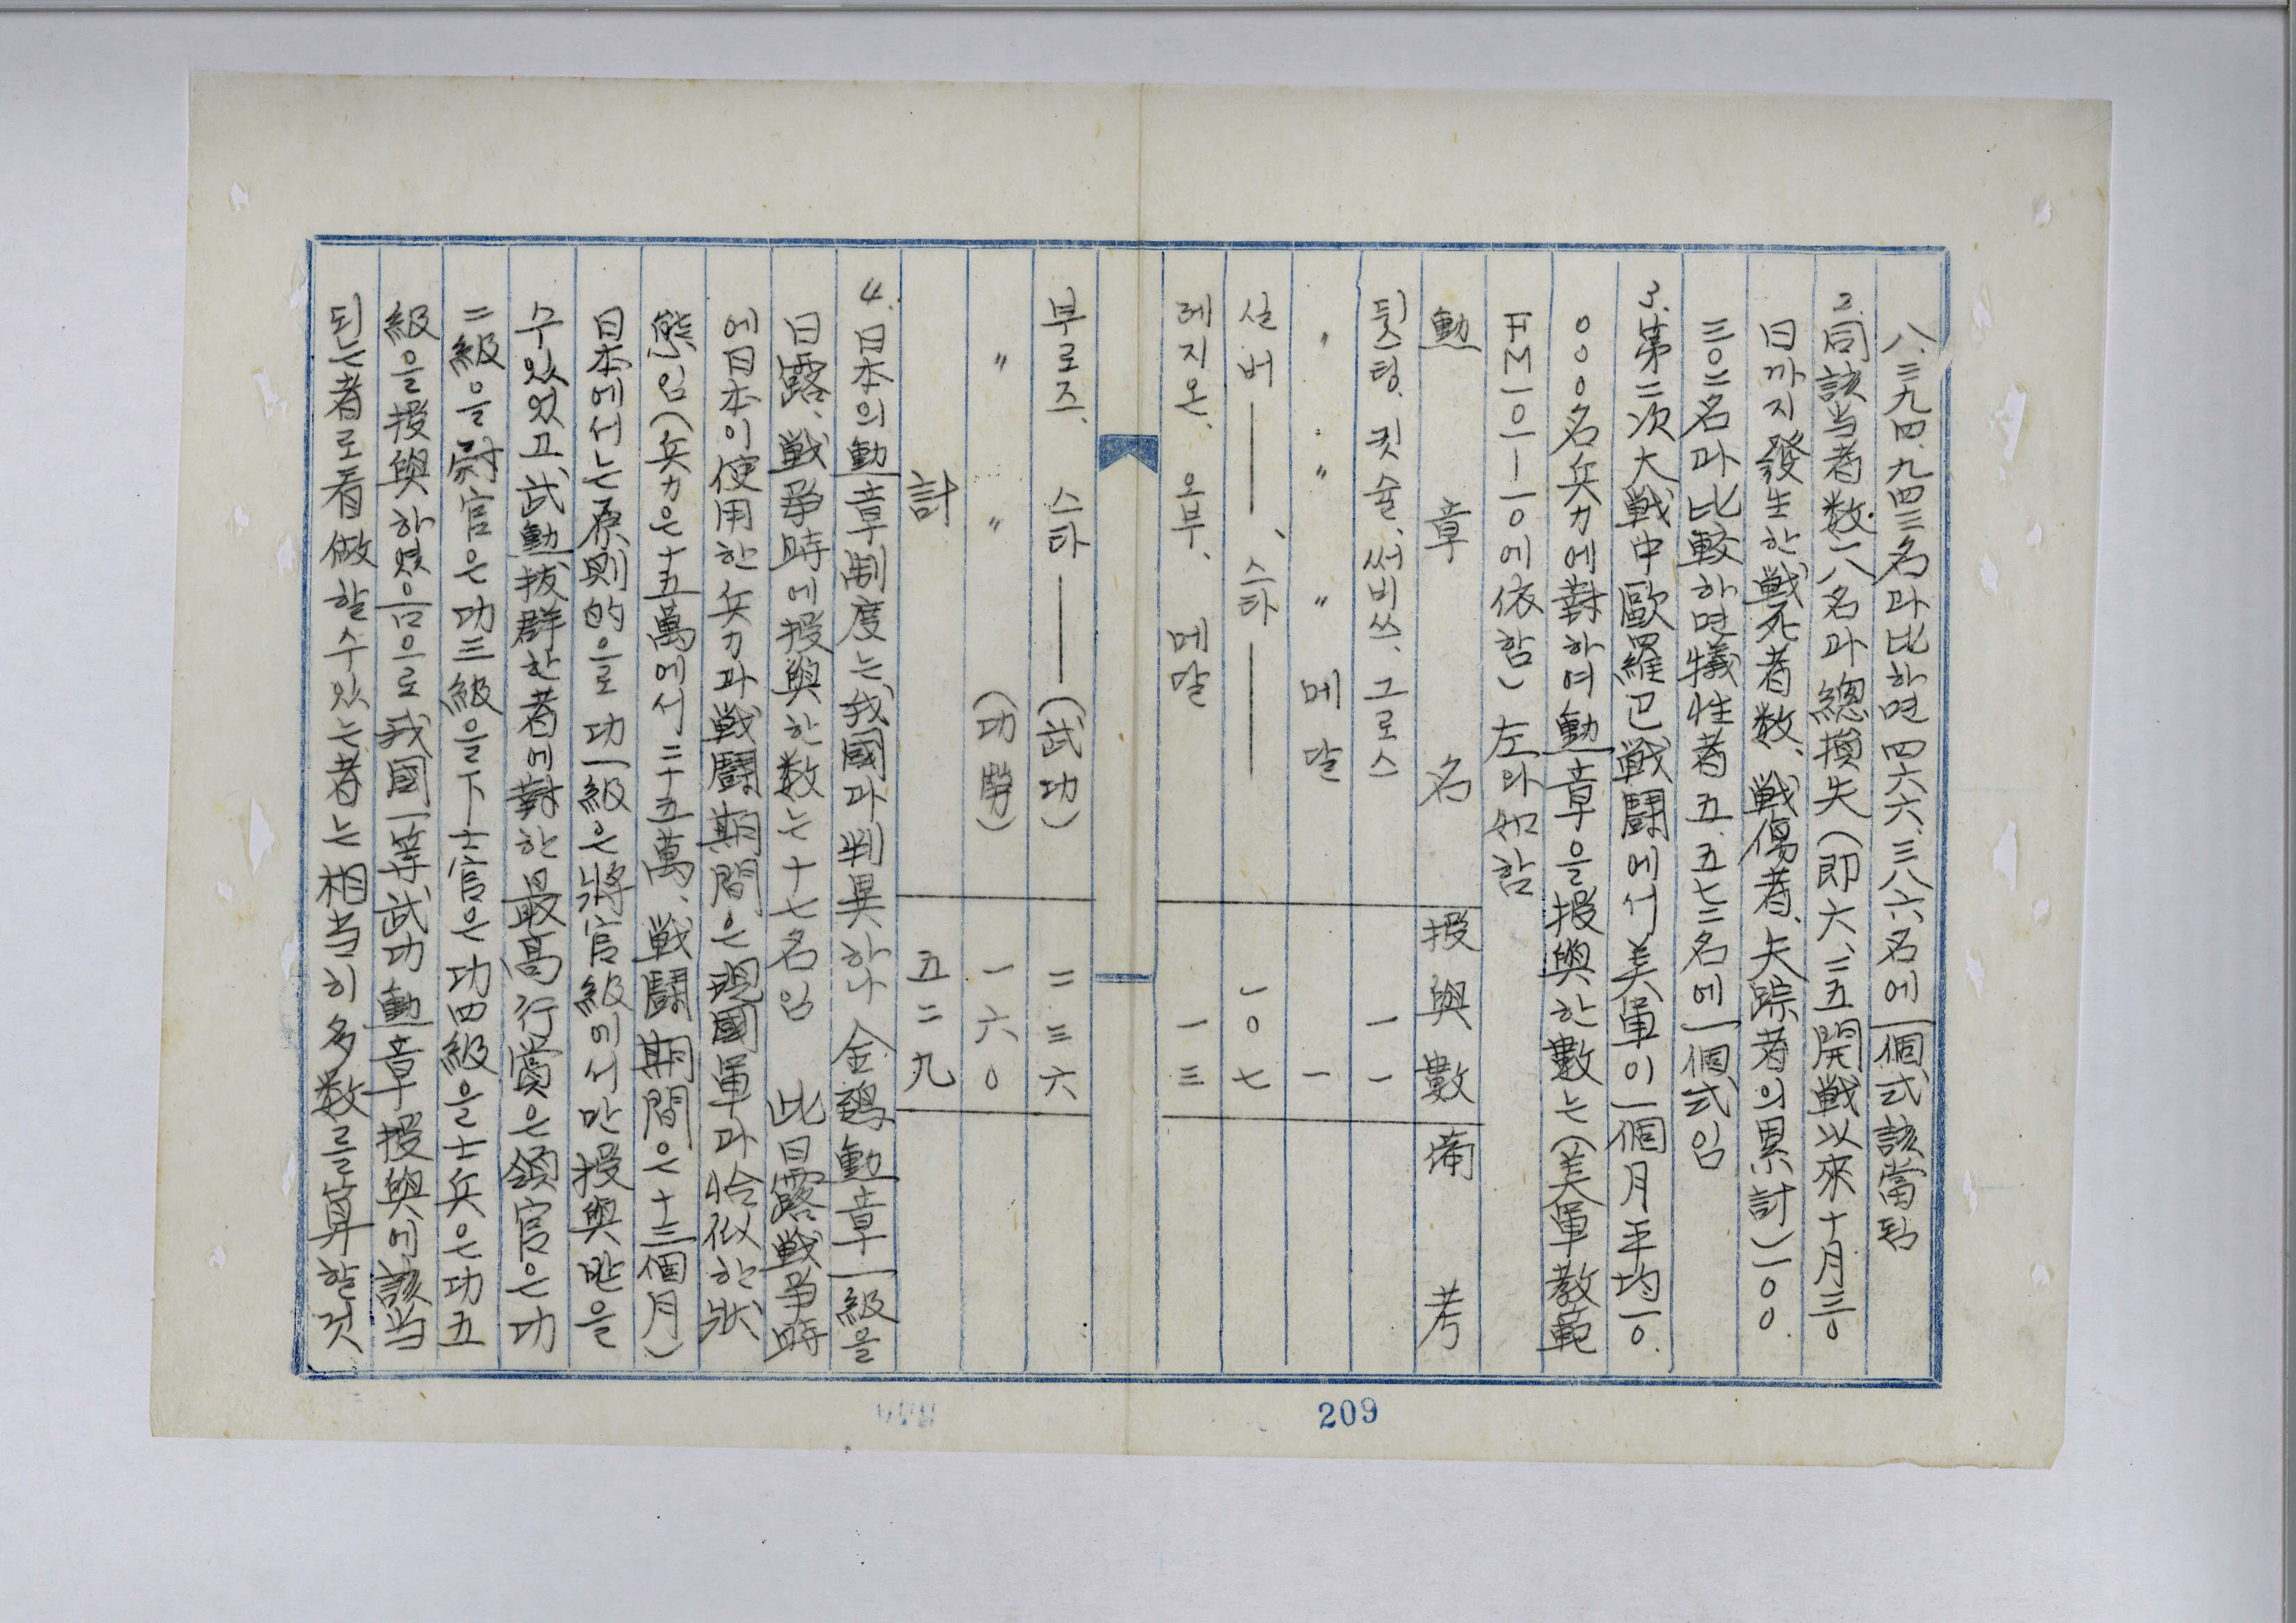 八.三九四.九四三名과比하면四六六.三八六名에一個式該當됨
2.同該当者数一八名과總損失(即六.二五開戦以來十月三〇
日까지發生한戦死者数、戦傷者、失踪者의累計)一〇〇.
三〇二名과比較하면犧牲者五.五七二名에一個式임
3.第二次大戦中歐羅巴戦鬪에서美軍이一個月平均一〇.
〇〇〇名兵力에對하여勳章을授與한數는(美軍敎範
FM一〇—一〇에依함)左와如함
勳 章 名 授與數 備 考
팅. 킷슐、써비쓰、그로스 一一
〃 〃 〃 메달 一
실버——、스타—— 一〇七
레지온、오부、메달 一三
부로즈、스타——(武功) 二三六
〃 〃 (功勞) 一六〇
計 五二九
4.日本의勳章制度는我國과判異하나 金鵄勳章一級을
日露、戦爭時에授與한数는十七名임 此日露戦爭時
에日本이使用한兵力과戦鬪期間은現國軍과恰似한狀
態임(兵力은十五萬에서二十五萬、戦鬪期間은十三個月)
日本에서는原則的으로功一級은將官級에서만授與받을
수있었고武勳拔群한者에對한最高行賞은領官은功
二級을尉官은功三級을下士官은功四級을士兵은功五
級을授與하였음으로我國一等武功勳章授與에該当
되는者로看做할수있는者는相当히多数를算할것
209